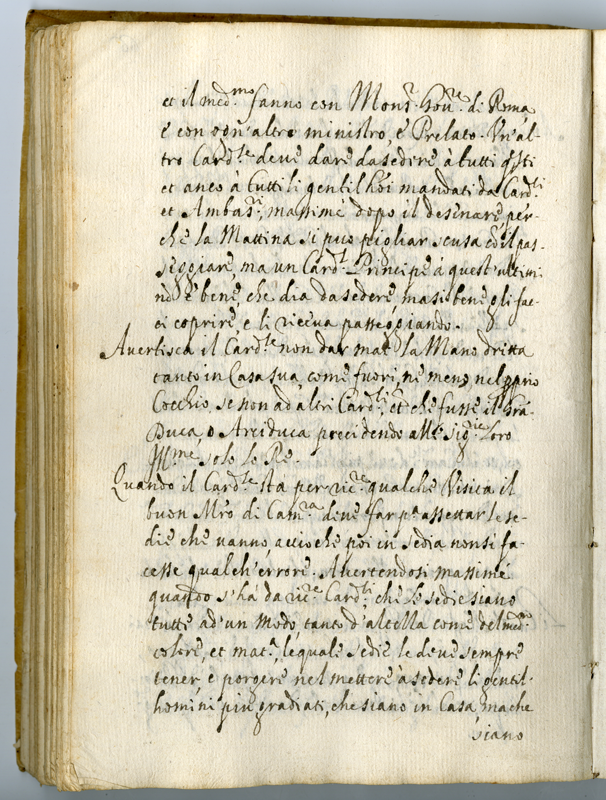 et il med.mo fanno con Mons.r Gov.re di Roma,
e con ogn'altro ministro, e Prelato. Un'al-
tro Card.le deve dare da sedere à tutti q̃sti
et anco à tutti li gentilhõi mandati da Card.li
et Ambas.ri, massime dopo il desinare, per-
che la Mattina si puo pigliar scusa cõ il pas-
seggiare, ma un Card.l Principe à quest'ultimi
nõ è bene, che dia da sedere ma si bene gli fac-
ci coprire, e li riceva passeggiando.
Avertisca il Card.le non dar mai la Mano dritta
tanto in Casa sua, come fuori, ne meno nel p̃prio
Cocchio, se non ad altri Card.li, et che fusse il Grã
Duca, o Arciduca precedendo alle Sig.rie Loro
Ill.me solo lo Re.
Quando il Card.le sta per ric.re qualche Visita il
buon Mro di Cam.ra deve far p.a assettar le se-
die che vanno accioche poi in sedia non si fa-
cesse qualch'errore. Avertendosi massime
quando s'hà da ric.re Card.li, che le sedie siano
tutte ad'un Modo tanto d'altezza come del med.mo
colore, et mat.a, le quale sedie le deve sempre
tener, e porgere nel mettere à sedere li gentil-
homini piu gradiati, che siano in Casa, ma che
siano